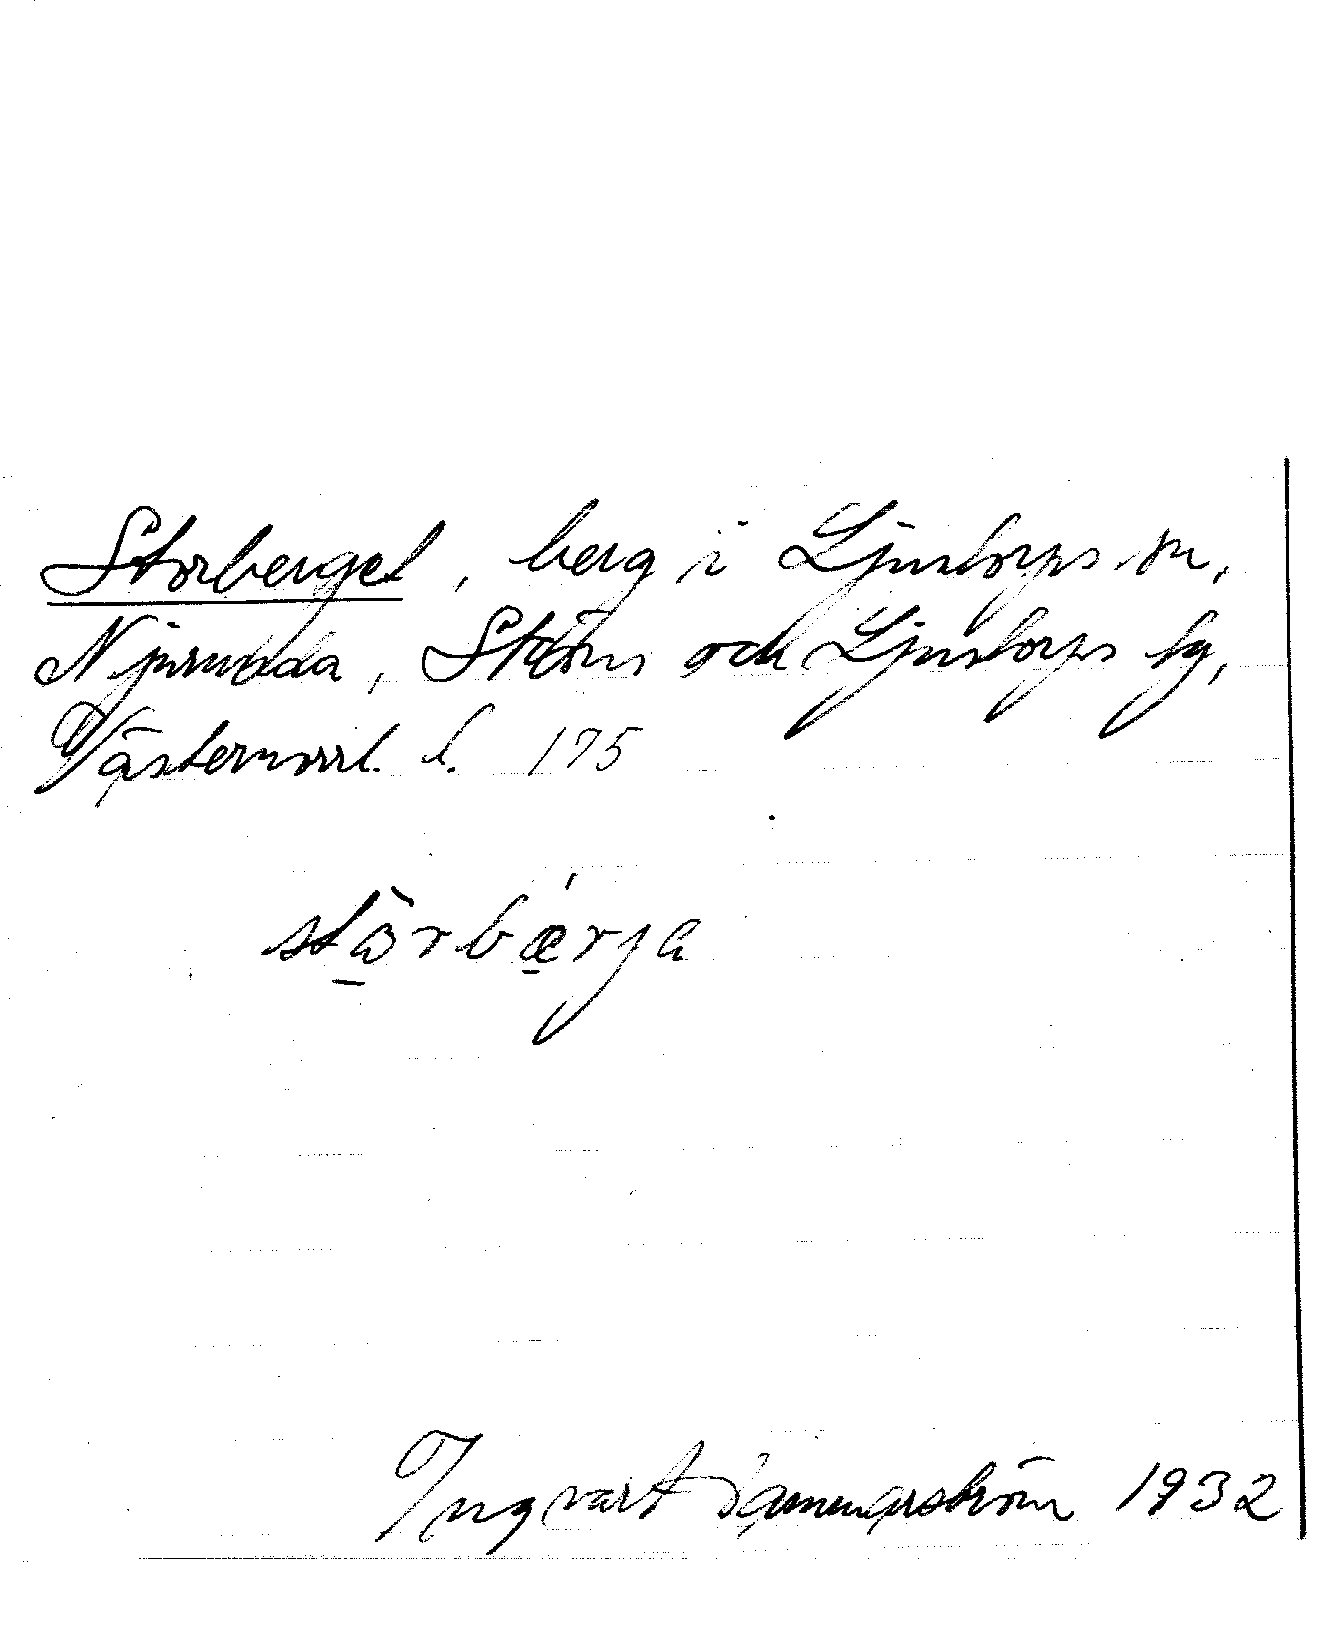 Storberget, berg i Ljustorps sn,
Njurunda, Sköns och Ljustorps tg,
Västernorrl. l. 175
stōrbǽrja
Ingvart Jämmerström 1932